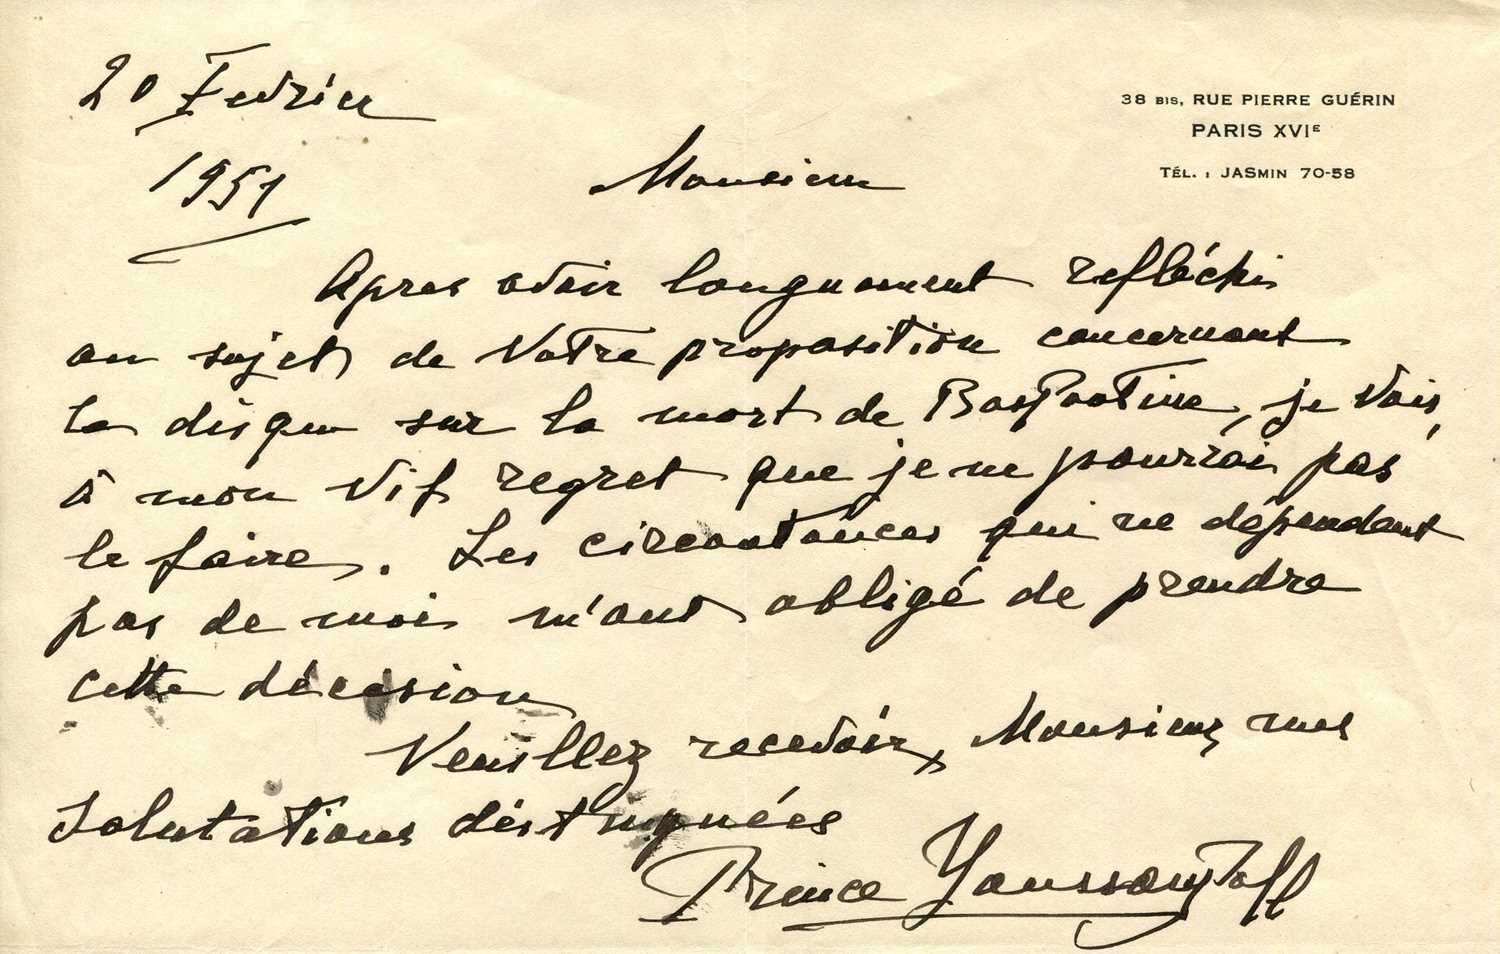 38 BIS, RUE PIERRE GUÉRIN
PARIS XVIE
TÉL. : JASMIN 70-58
20 Fevrier
1951
Monsieur
Apres avoir longuement refléchi
au sujet de votre proposition concernant
le disque sur la mort de Raspoutine, je vois,
à mon vif regret que je ne pourrai pas
le faire. Les circontances qui ne dépendent
pas de moi m'ont obligé de prendre
cette décesion
Veuillez recevoir, Monsieur, mes
salutations distinguées
Prince Youssoupoff